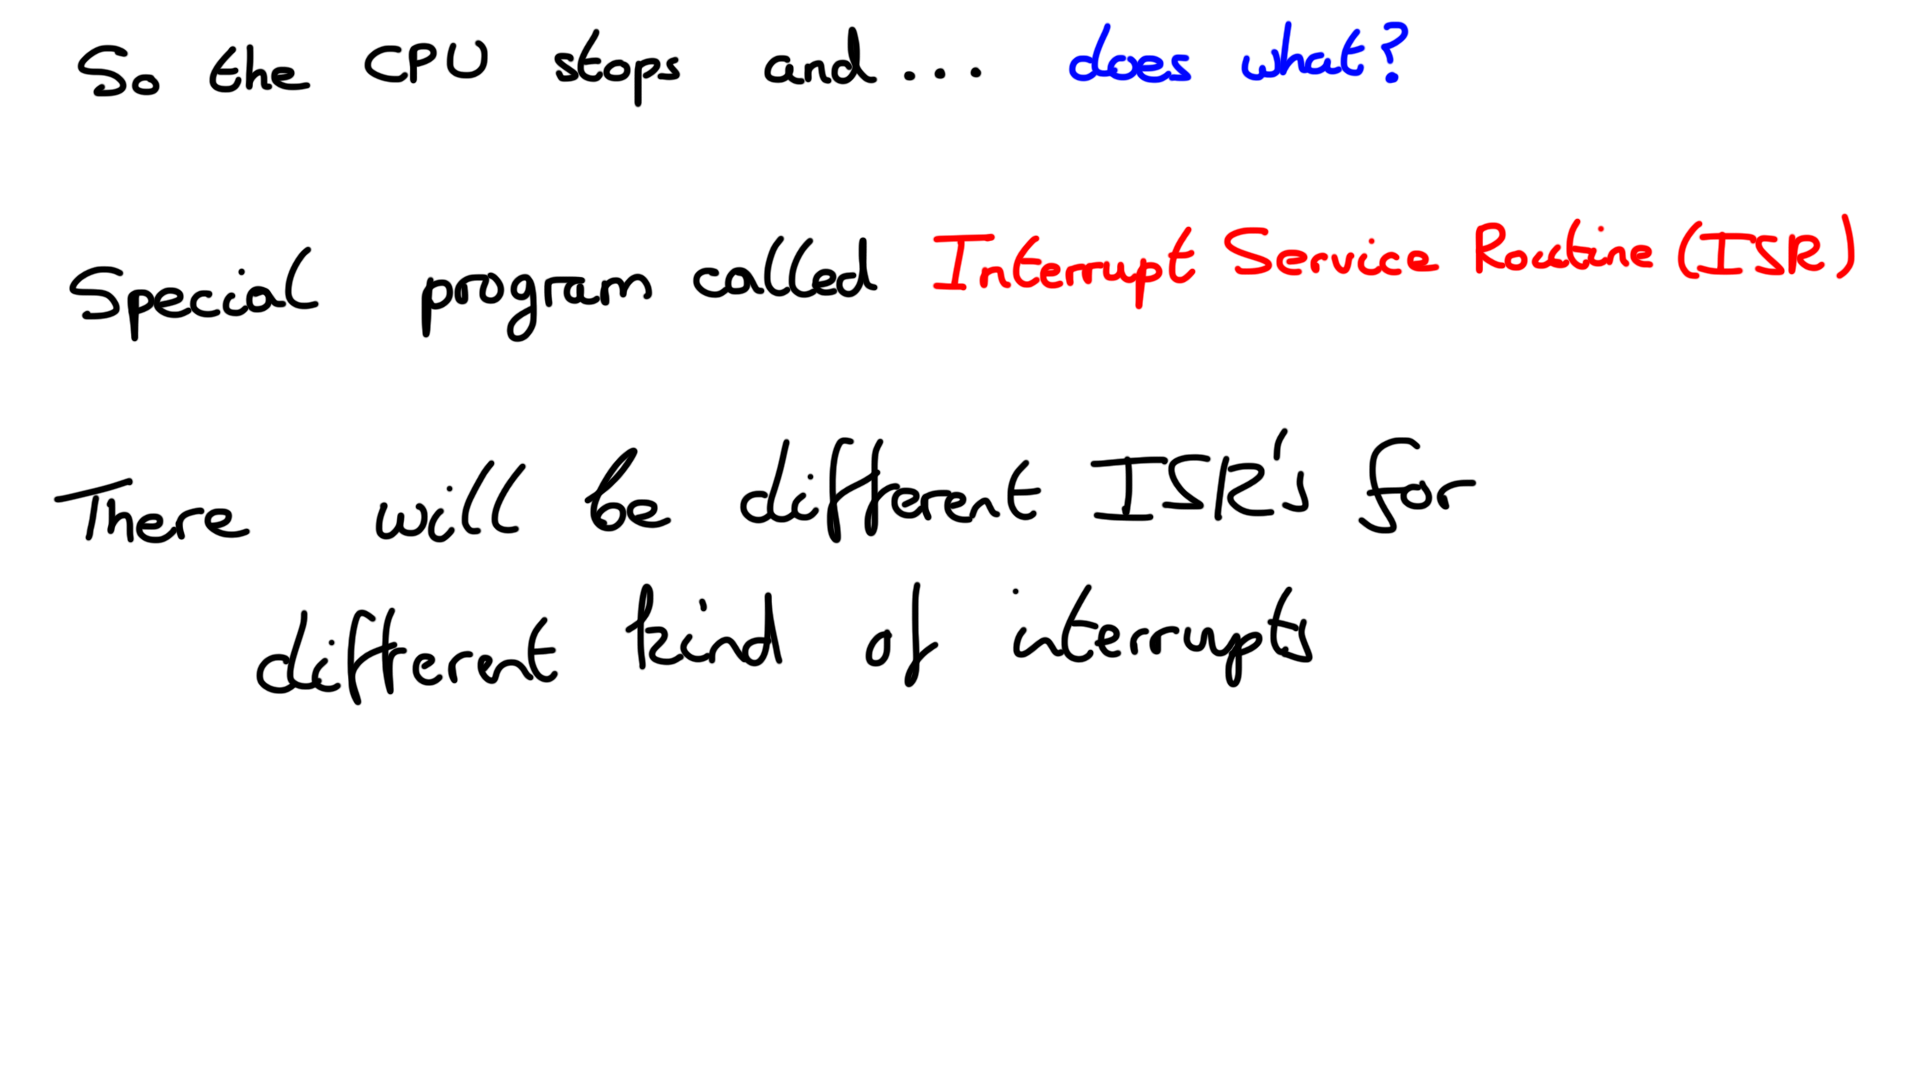 So the CPU stops and... does what?
Special program called Interrupt Service Routine (ISR)
There will be different ISR's for
different kind of interrupts